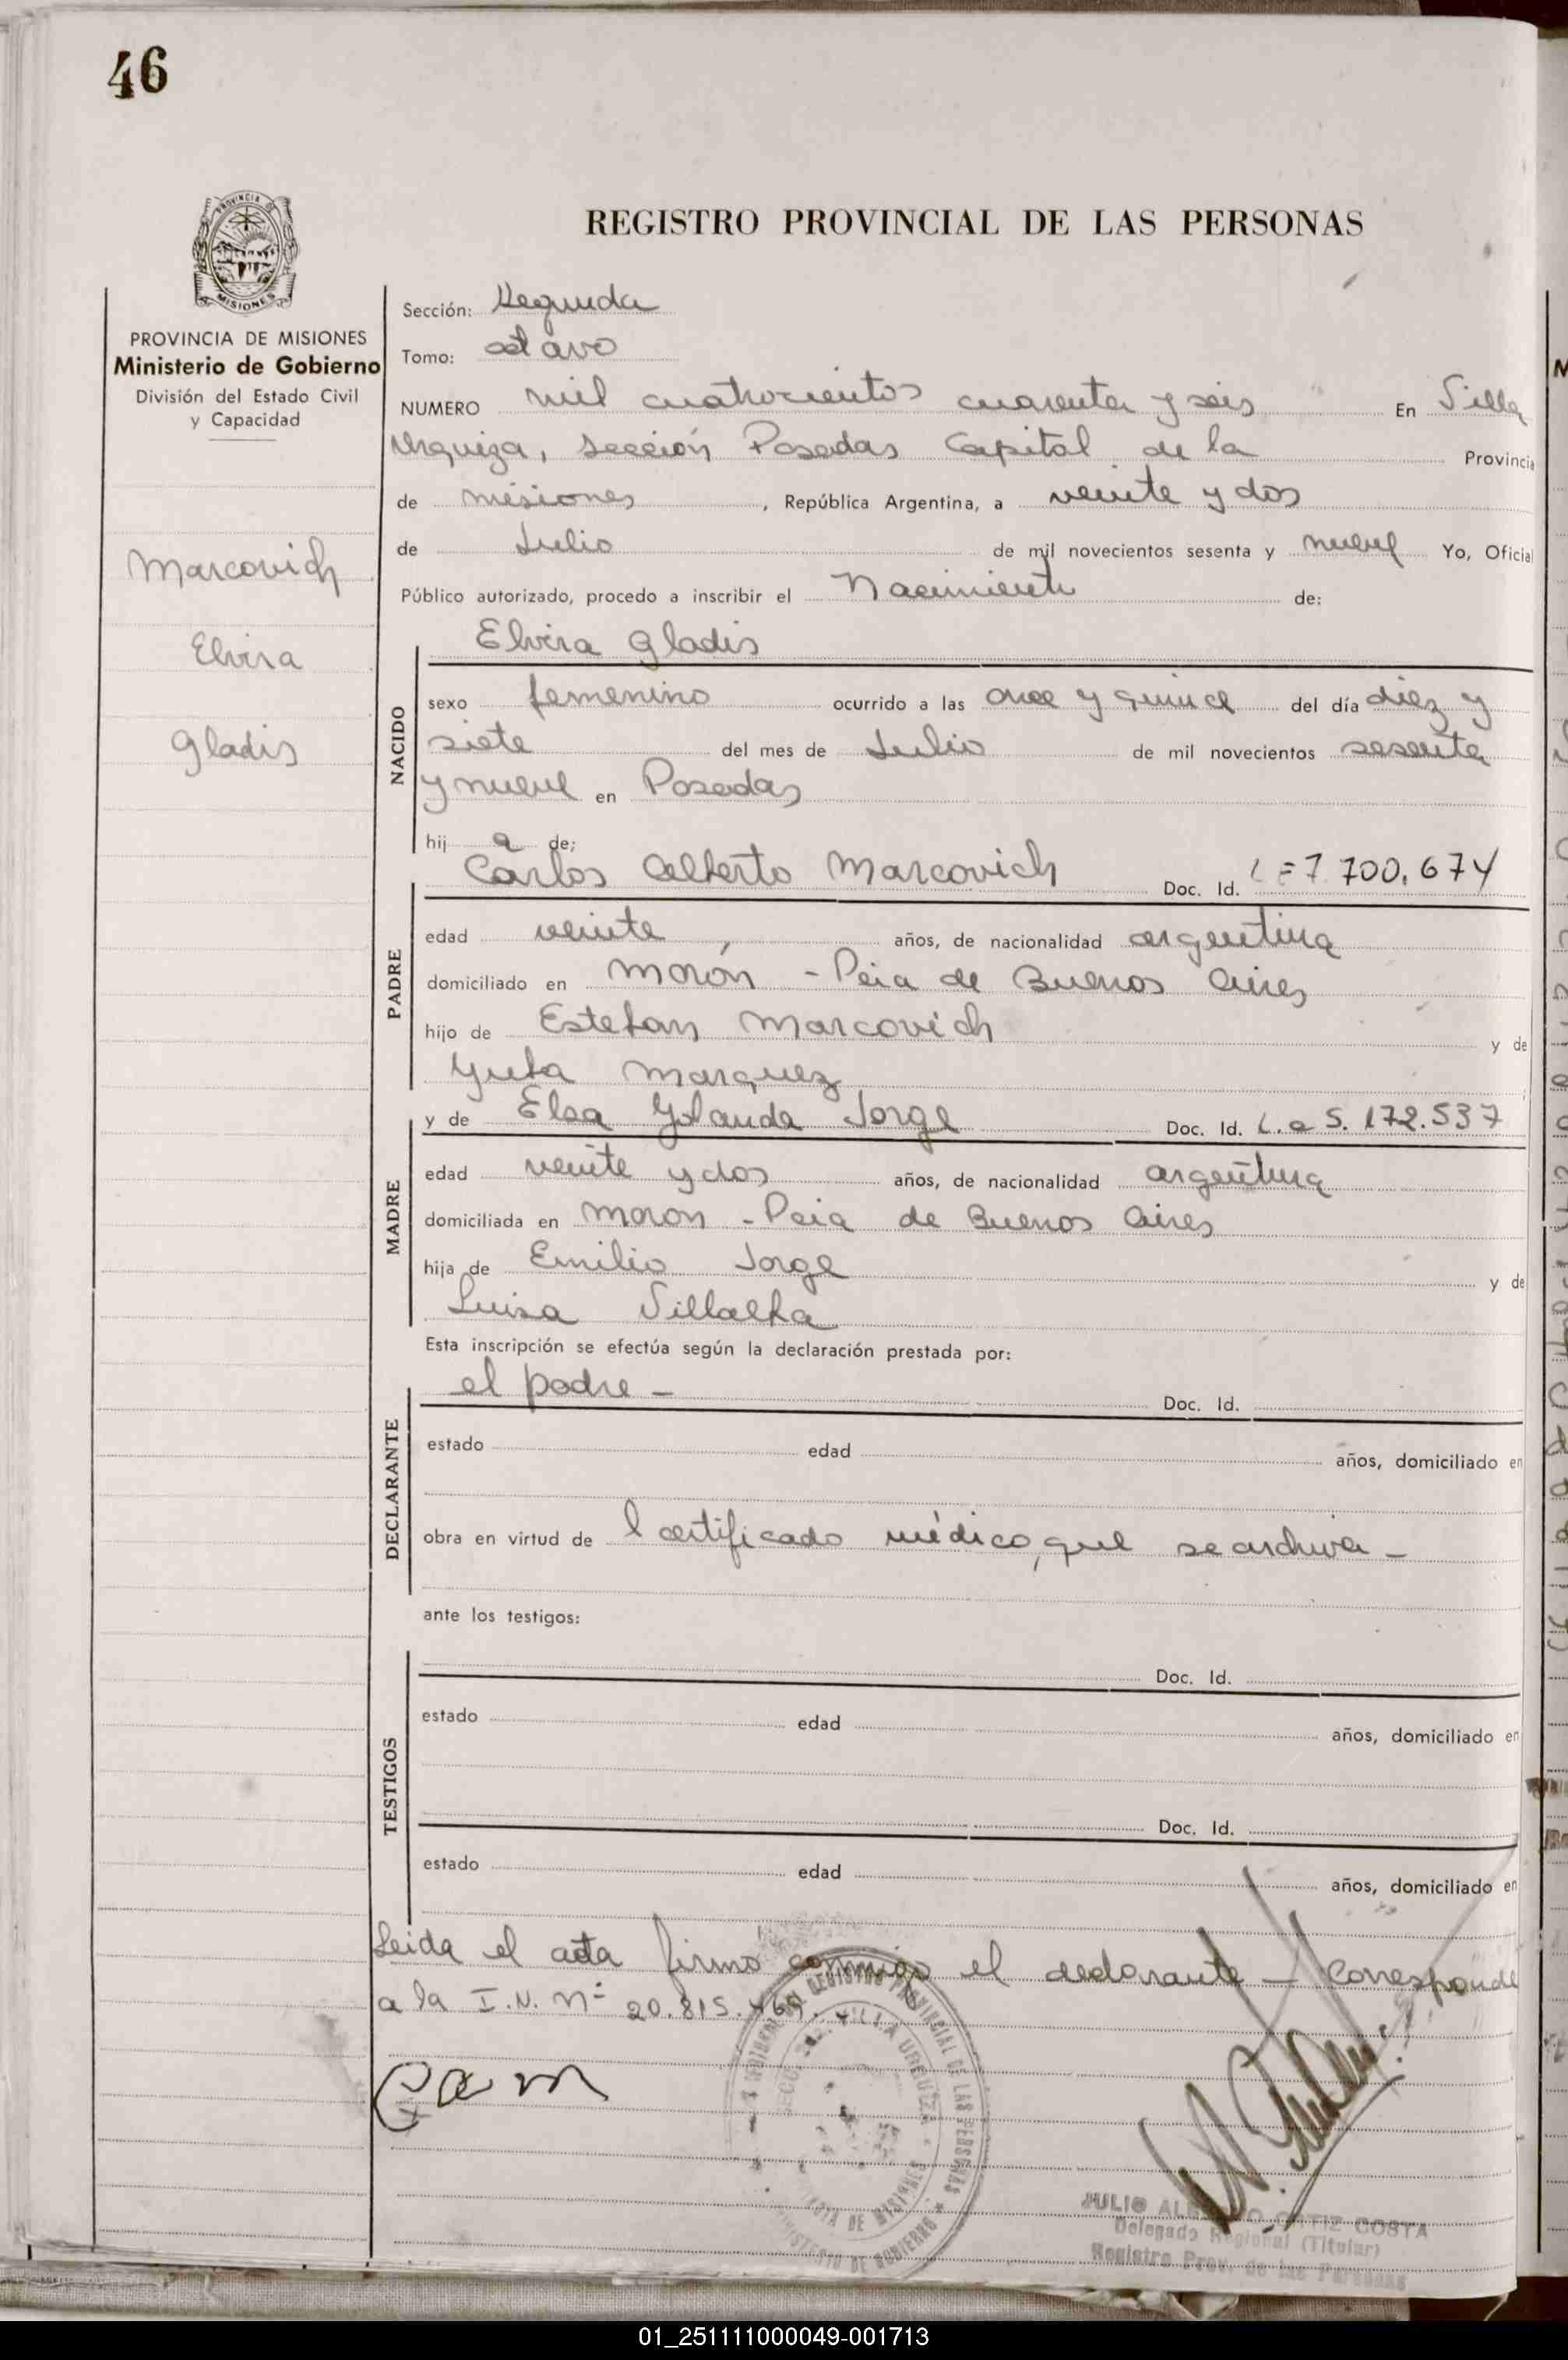 46
PROVINCIA DE
MISIONES
REGISTRO PROVINCIAL DE LAS PERSONAS
PROVINCIA DE MISIONES
Ministerio de Gobierno
División del Estado Civil
y Capacidad
Marcovich
Elvira
Gladis
Sección: Segunda
Tomo: octavo
NUMERO mil cuatrocientos cuarenta y seis En Villa
Urquiza, sección Posadas Capital de la Provincia
de misiones, República Argentina, a veinte y dos
de Julio de mil novecientos sesenta y nueve Yo, Oficial
Público autorizado, procedo a inscribir el Nacimiento de:
Elvira Gladis
NACIDO
sexo femenino ocurrido a las once y quince del día diez y
siete del mes de Julio de mil novecientos sesenta
y nueve en Posadas
hij a de;
Carlos Alberto Marcovich Doc. Id. LE 7.700.674
PADRE
edad veinte años, de nacionalidad argentina
domiciliado en Morón - Pcia de Buenos Aires
hijo de Esteban Marcovich y de
Marquez
y de Elsa Yolanda Jorge Doc. Id. L.C 5.172.537
MADRE
edad veinte y dos años, de nacionalidad argentina
domiciliada en Moron - Pcia de Buenos Aires
hija de Emilio Jorge y de
Luisa Villalba
Esta inscripción se efectúa según la declaración prestada por:
el padre - Doc. Id.
DECLARANTE
estado edad años, domiciliado en
obra en virtud de l certificado médico, que se archiva -
ante los testigos:
Doc. Id.
TESTIGOS
estado edad años, domiciliado en
Doc. Id.
estado edad años, domiciliado en
Leida el acta firma conmigo el declarante - Corresponde
a la I.N. Nº 20.815.469.
REGISTRO PROVINCIAL DE LAS PERSONAS
VILLA URQUIZA
MINISTERIO DE GOBIERNO
JULIO ALBERTO ORTIZ COSTA
Delegado Regional (Titular)
Registro Prov. de las Personas
01_251111000049-001713